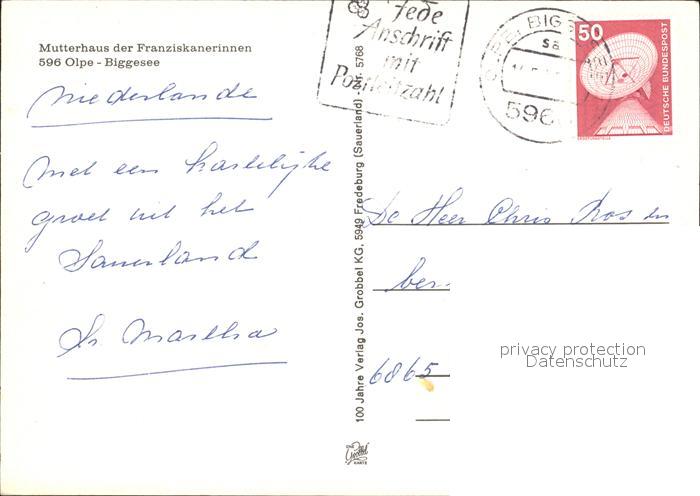 Mutterhaus der Franziskanerinnen
596 Olpe - Biggesee
Niederlande
Met een hartelijke
groet uit het
Sauerland
Sr Martha
Jede
Anschrift
mit
Postleitzahl
BIGG
596
50
DEUTSCHE BUNDESPOST
100 Jahre Verlag Jos. Grobbel KG, 5949 Fredeburg (Sauerland) Nr. 5768
De Heer Chris
6865
privacy protection
Datenschutz
Grobbel
KARTE